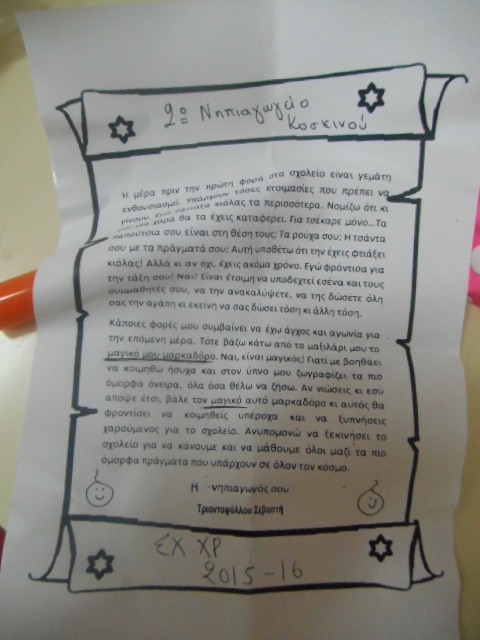 2ο Νηπιαγωγείο
Κοσκινού
Η μέρα πριν την πρώτη φορά στο σχολείο είναι γεμάτη
ενθουσιασμό. Υπάρχουν τόσες ετοιμασίες που πρέπει να
γίνουν. Εγώ έφτιαξα κιόλας τα περισσότερα. Νομίζω ότι κι
εσύ μια χαρά θα τα έχεις καταφέρει. Για τσέκαρε μόνο...Τα
παπούτσια σου είναι στη θέση τους; Τα ρούχα σου; Η τσάντα
σου με τα πράγματά σου; Αυτή υποθέτω ότι την έχεις φτιάξει
κιόλας! Αλλά κι αν όχι, έχεις ακόμα χρόνο. Εγώ φρόντισα για
την τάξη σου! Ναι! Είναι έτοιμη να υποδεχτεί εσένα και τους
συμμαθητές σου, να την ανακαλύψετε, να της δώσετε όλη
σας την αγάπη κι εκείνη να σας δώσει τόση κι άλλη τόση.
Κάποιες φορές μου συμβαίνει να έχω άγχος και αγωνία για
την επόμενη μέρα. Τότε βάζω κάτω από το μαξιλάρι μου το
μαγικό μου μαρκαδόρο. Ναι, είναι μαγικός! Γιατί με βοηθάει
να κοιμηθώ ήσυχα και στον ύπνο μου ζωγραφίζει τα πιο
όμορφα όνειρα, όλα όσα θέλω να ζήσω. Αν νιώσεις κι εσύ
απόψε έτσι, βάλε τον μαγικό αυτό μαρκαδόρο κι αυτός θα
φροντίσει να κοιμηθείς υπέροχα και να ξυπνήσεις
χαρούμενος για το σχολείο. Ανυπομονώ να ξεκινήσει το
σχολείο για να κάνουμε και να μάθουμε όλοι μαζί τα πιο
όμορφα πράγματα που υπάρχουν σε όλον τον κόσμο.
Η νηπιαγωγός σου
Τριανταφύλλου Σεβαστή
ΣΧ ΧΡ
2015-16